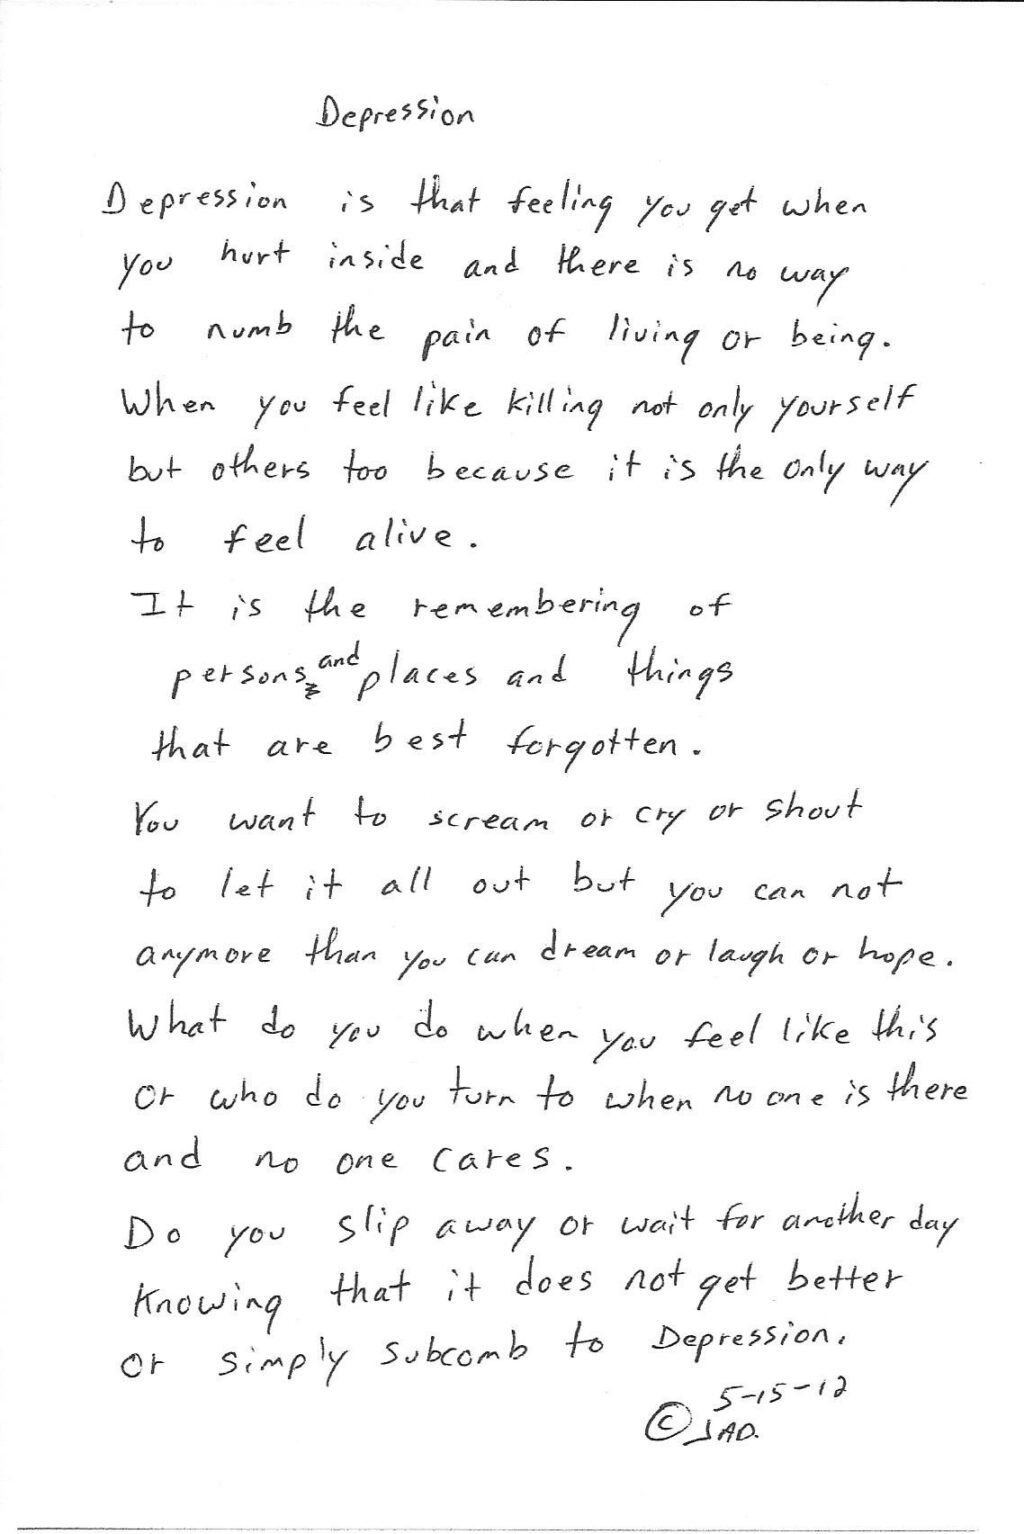 Depression
Depression is that feeling you get when
you hurt inside and there is no way
to numb the pain of living or being.
When you feel like killing not only yourself
but others too because it is the only way
to feel alive.
It is the remembering of
persons and places and things
that are best forgotten.
You want to scream or cry or shout
to let it all out but you can not
anymore than you can dream or laugh or hope.
What do you do when you feel like this
or who do you turn to when no one is there
and no one cares.
Do you slip away or wait for another day
Knowing that it does not get better
or simply subcomb to Depression.
5-15-12
© JAD.